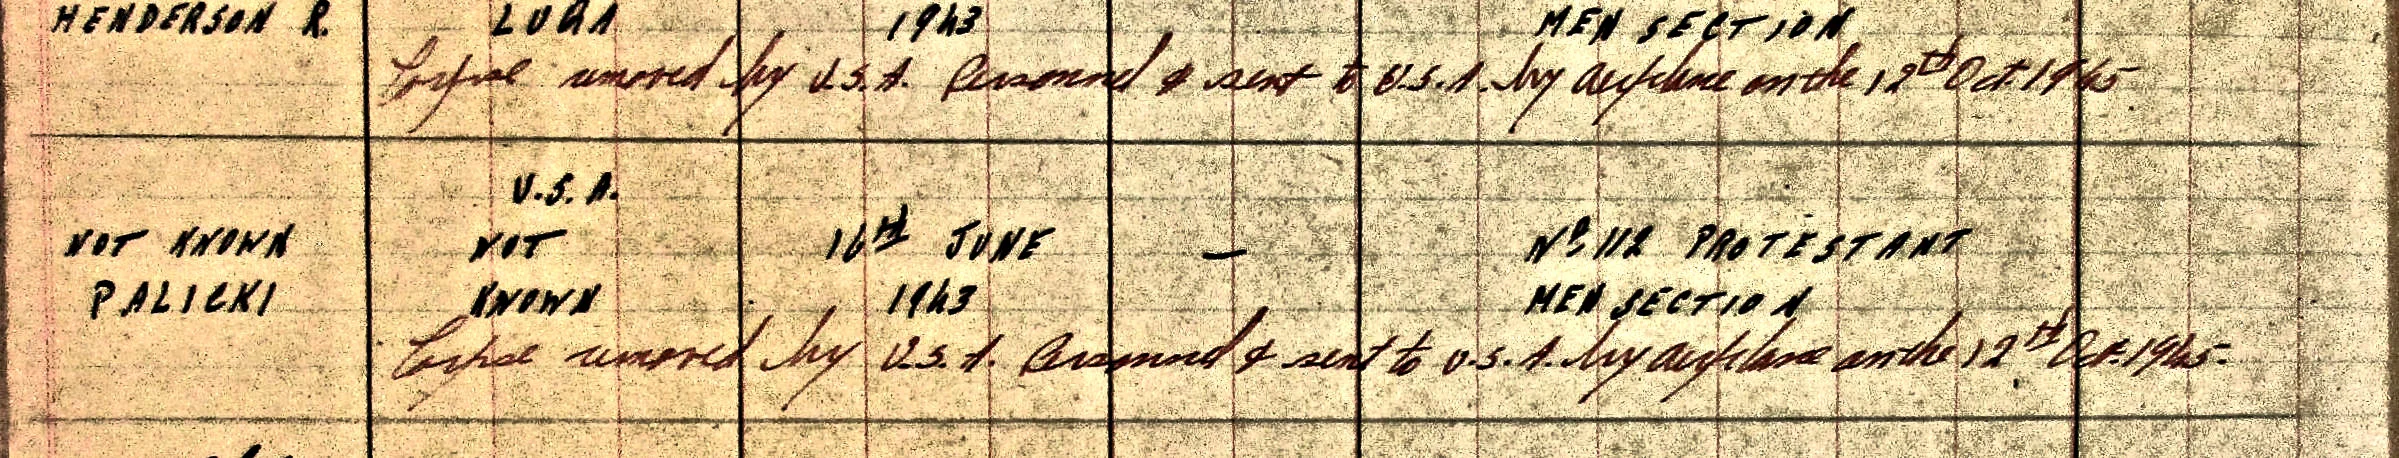 HENDERSON R. LUQA 1943 MEN SECTION
Corpse removed by U.S.A. Personnel & sent to U.S.A. by airplane on the 12th Oct 1945
U.S.A.
NOT KNOWN NOT 16th JUNE — No 112 PROTESTANT
PALICKI KNOWN 1943 MEN SECTION
Corpse removed by U.S.A. Personnel & sent to U.S.A. by airplane on the 12th Oct. 1945.